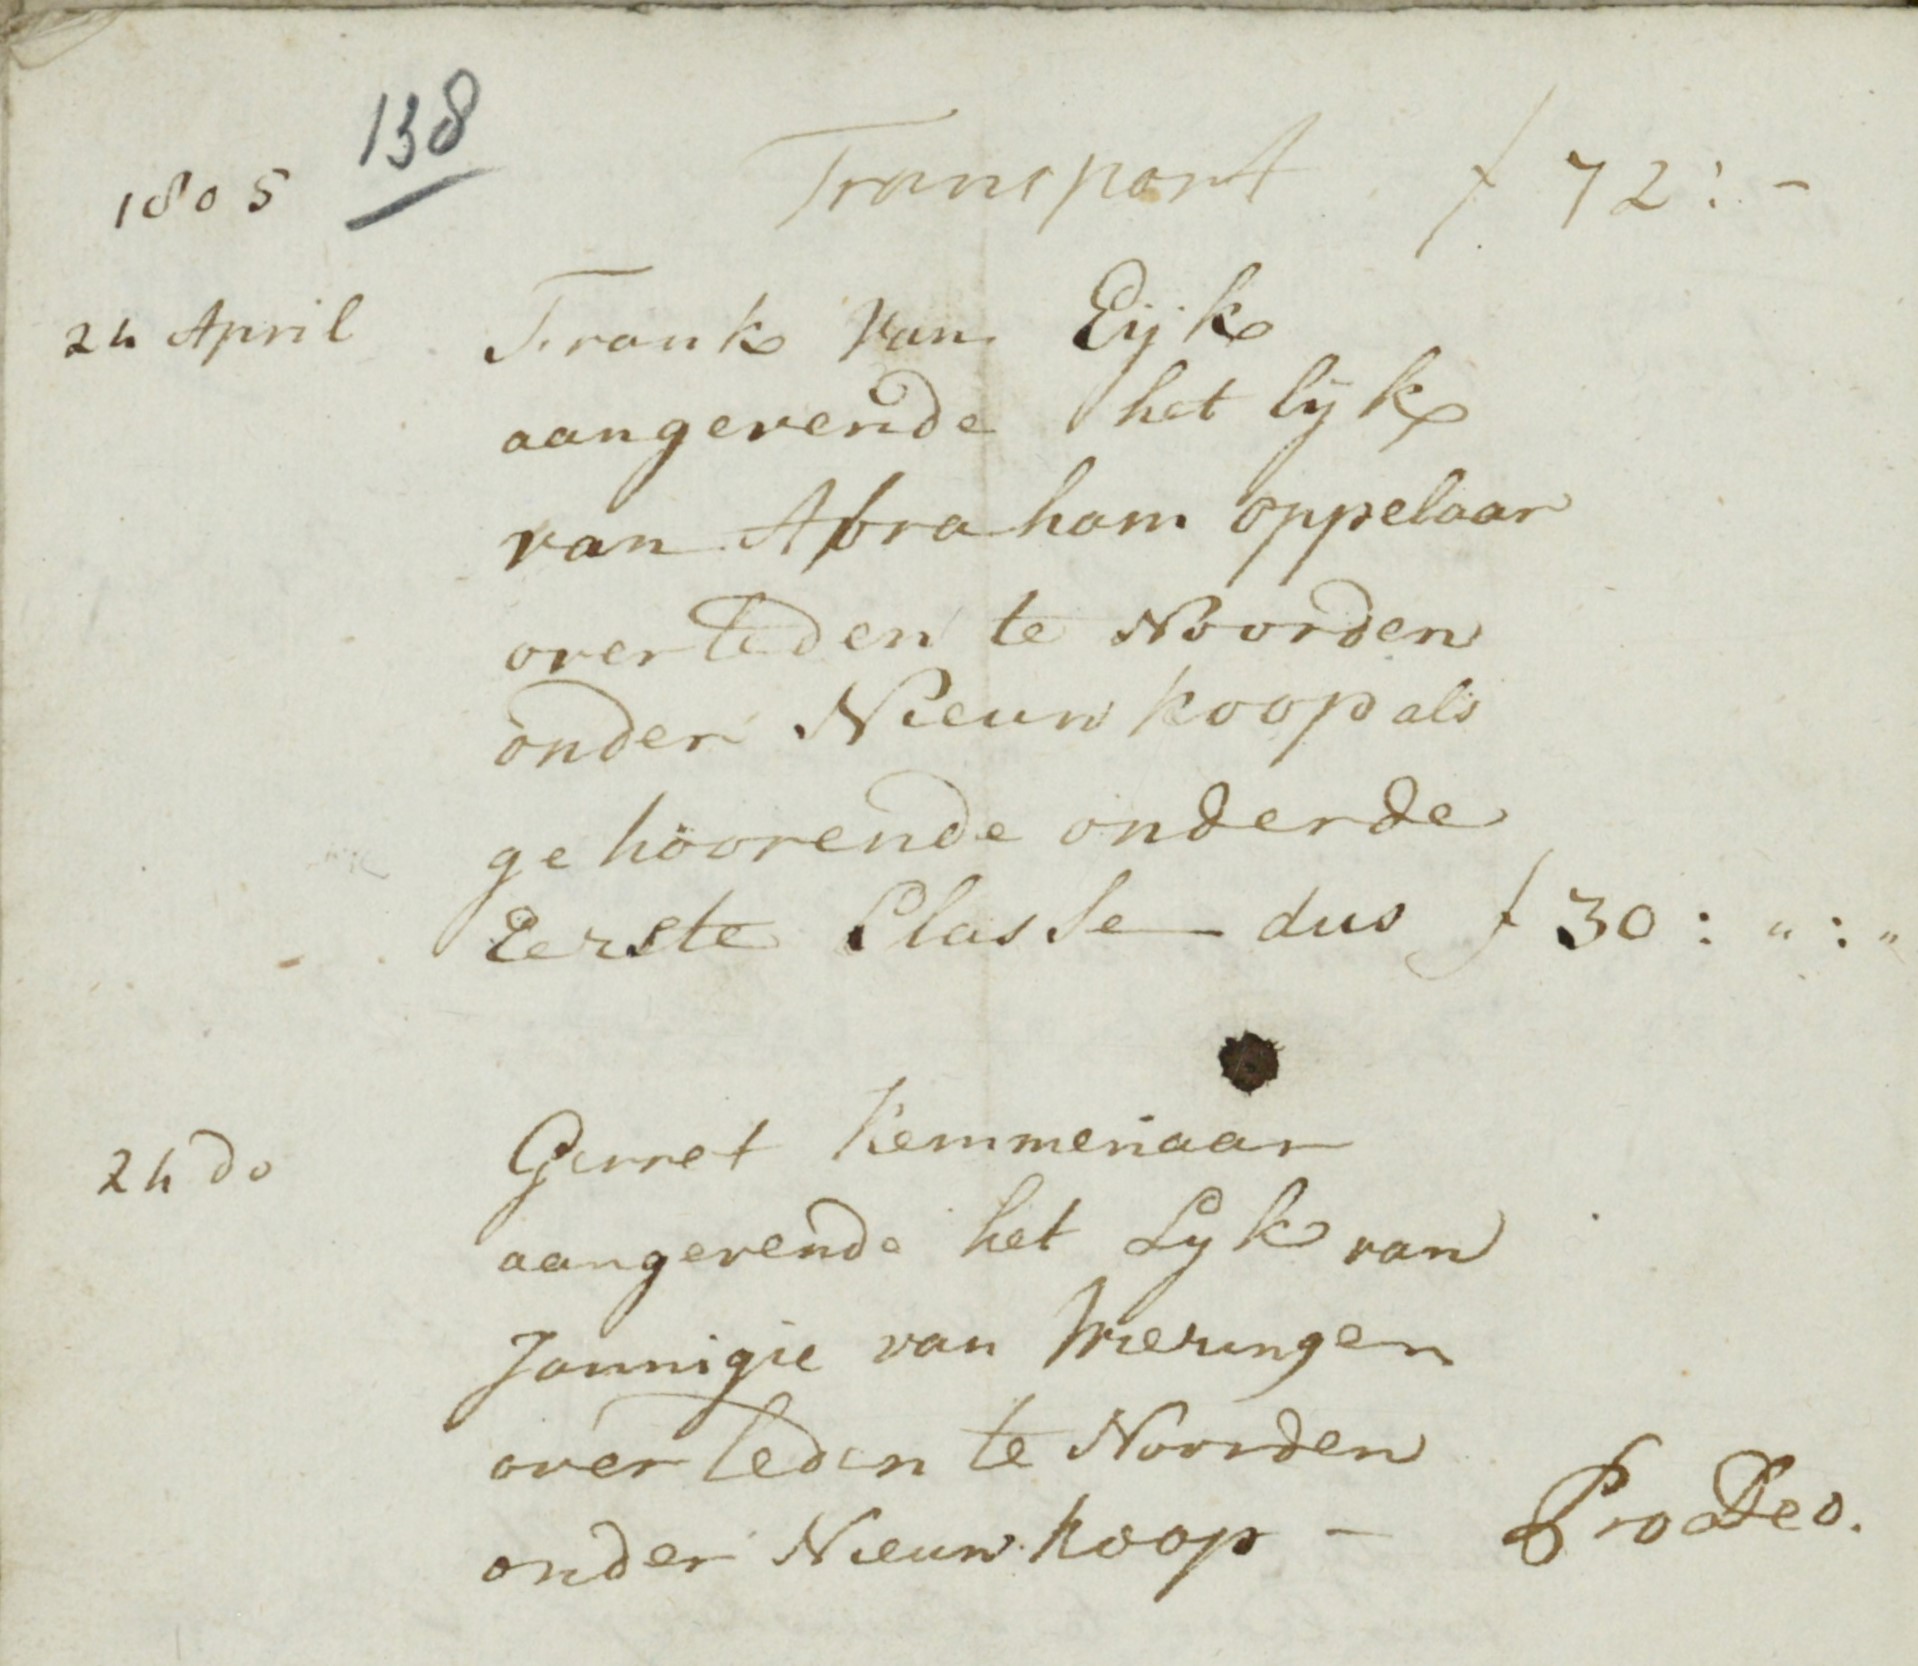 138
1805 Transport f 72:-
24 April Frank van Eijk
aangevende het lijk
van Abraham oppelaar
overleden te Noorden
onder Nieuwkoop als
gehoorende onder de
Eerste Classe dus f 30: " : "
24 do Gerret Kemmenaar
aangevende het Lyk van
Jannigie van Wieringen
overleden te Noorden
onder Nieuwkoop - Pro Deo.